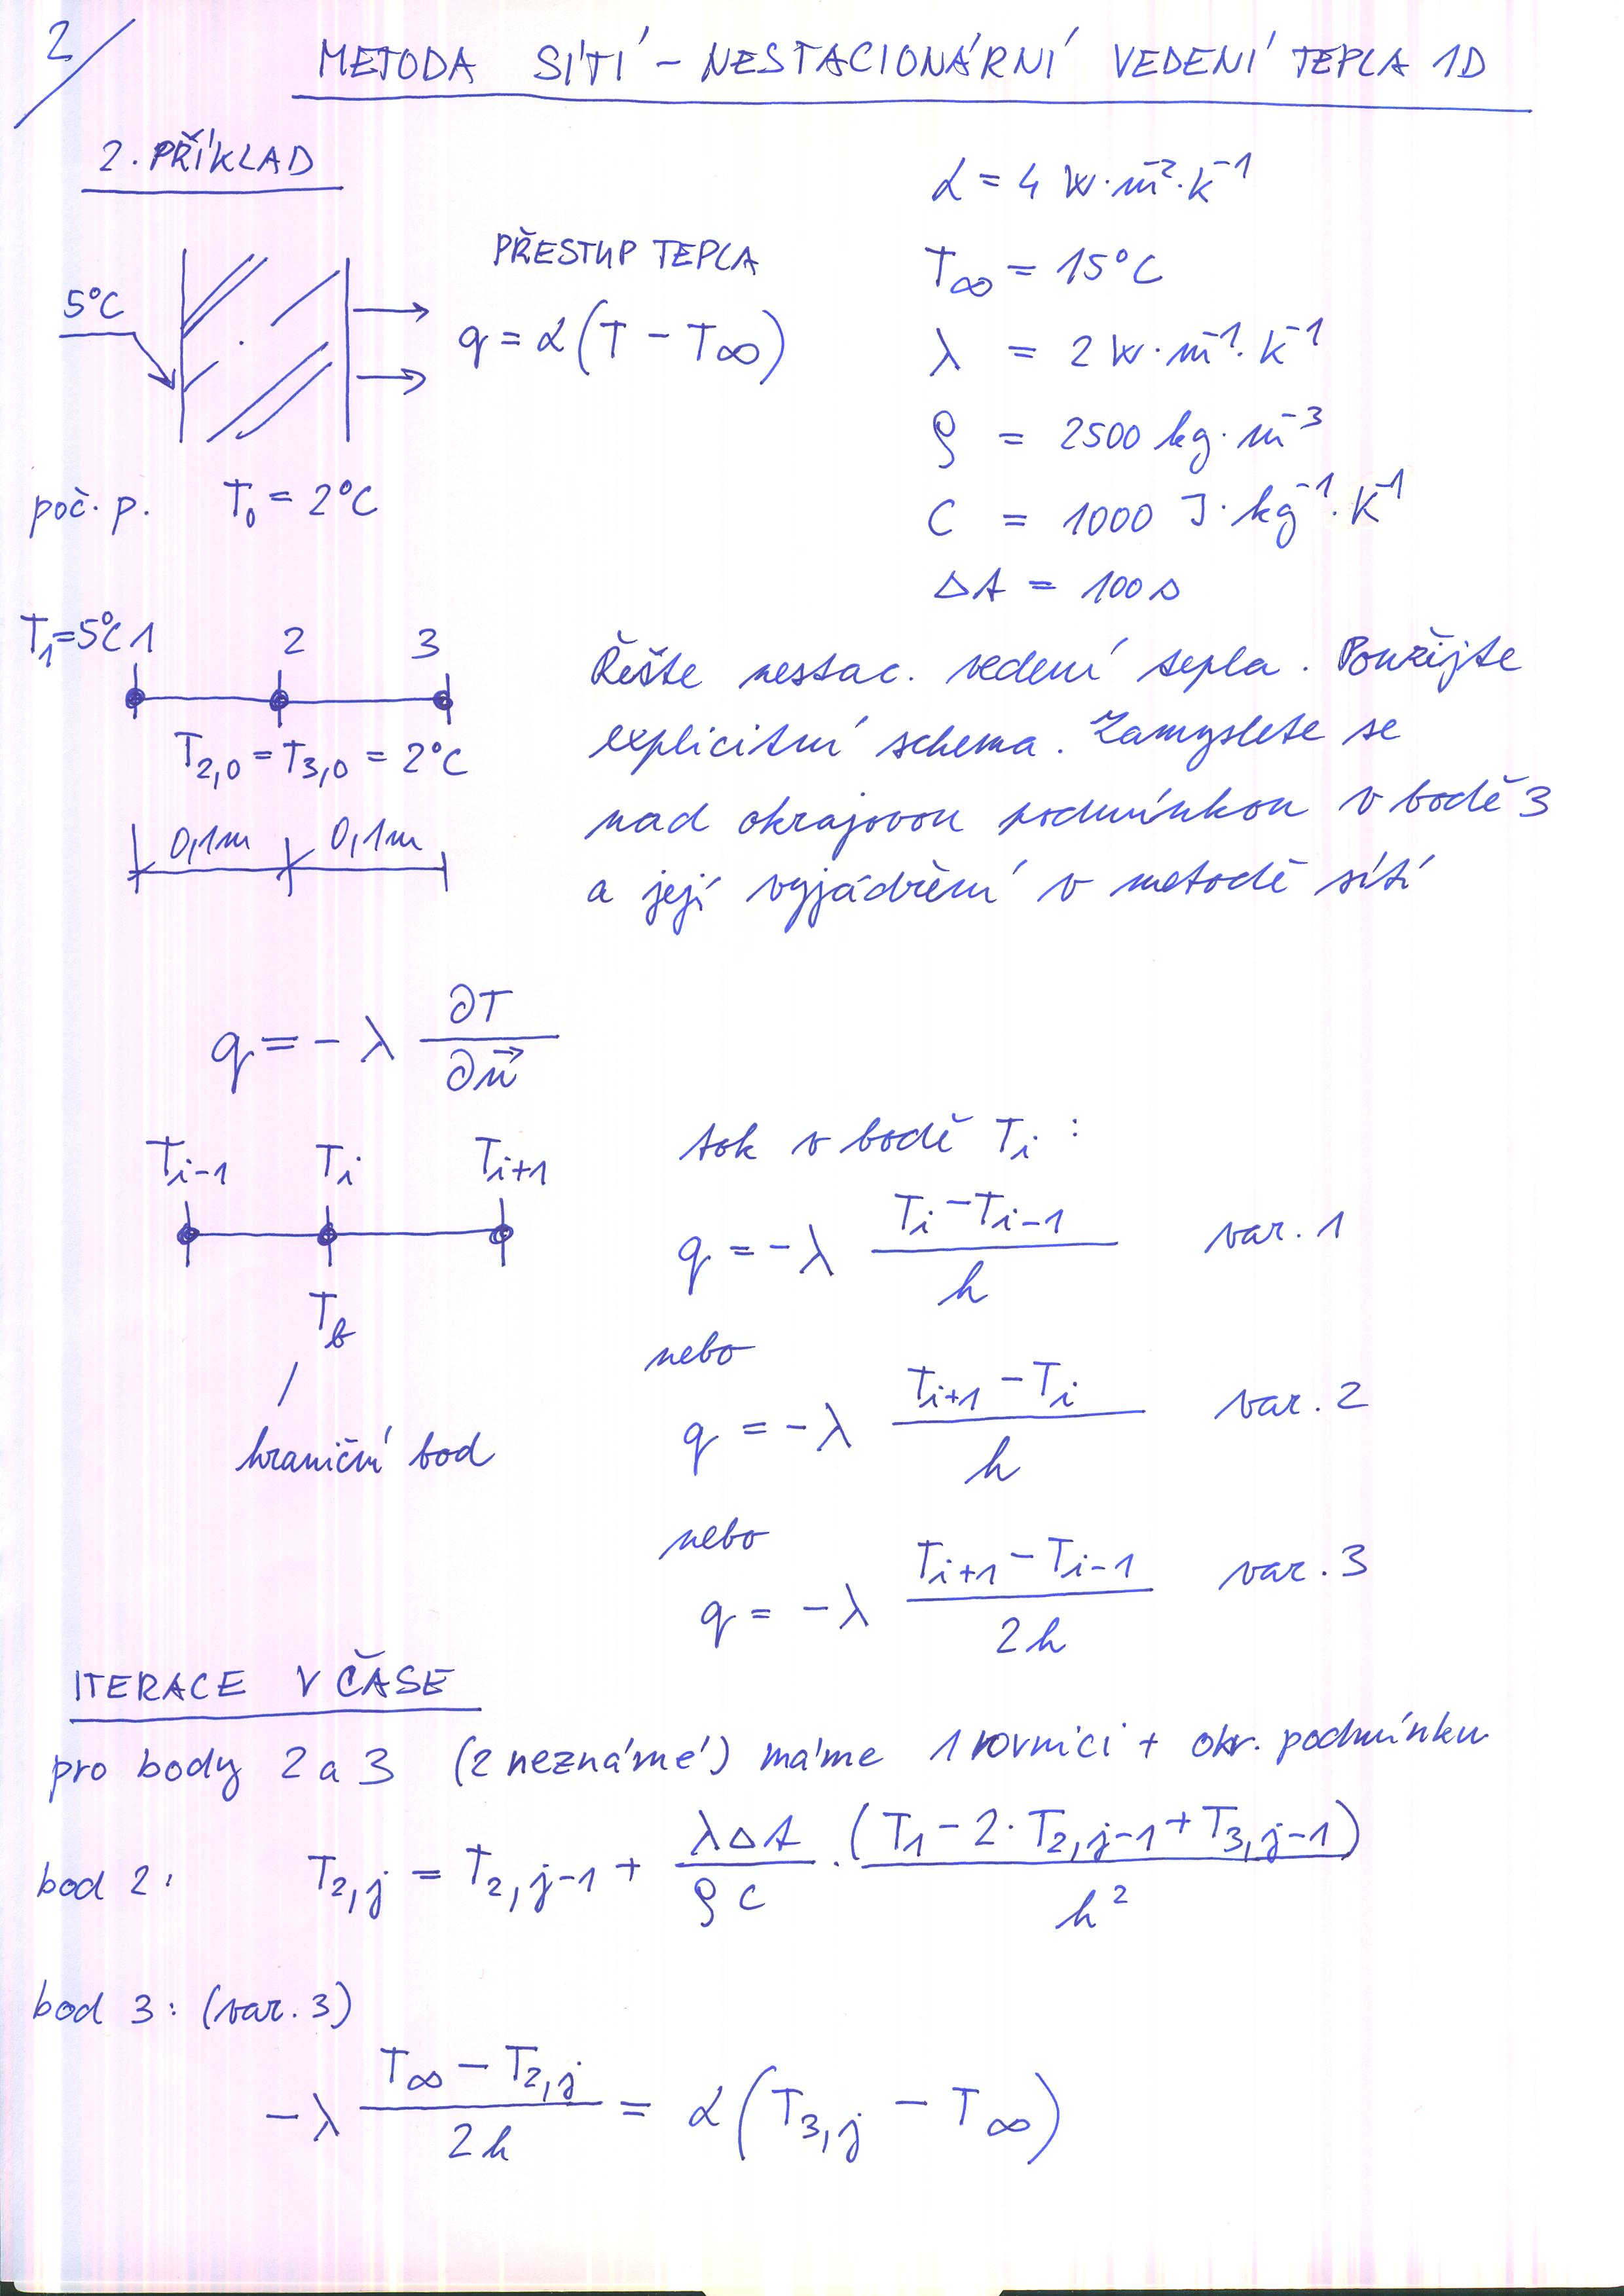 2/
METODA SÍTÍ - NESTACIONÁRNÍ VEDENÍ TEPLA 1D
2. PŘÍKLAD
α = 4 W·m⁻²·K⁻¹
PŘESTUP TEPLA
5°C
q = α(T - T∞)
T∞ = 15°C
λ = 2 W·m⁻¹·K⁻¹
ρ = 2500 kg·m⁻³
poč. p. T₀ = 2°C
C = 1000 J·kg⁻¹·K⁻¹
Δt = 100 s
T₁=5°C 1 2 3
T₂,₀ = T₃,₀ = 2°C
0,1m 0,1m
Řešte nestac. vedení tepla. Použijte
explicitní schema. Zamyslete se
nad okrajovou podmínkou v bodě 3
a její vyjádření v metodě sítí
q = - λ ∂T / ∂n⃗
Tᵢ₋₁ Tᵢ Tᵢ₊₁
T_b
hraniční bod
tok v bodě Tᵢ :
q = - λ (Tᵢ - Tᵢ₋₁) / h var. 1
nebo
q = - λ (Tᵢ₊₁ - Tᵢ) / h var. 2
nebo
q = - λ (Tᵢ₊₁ - Tᵢ₋₁) / 2h var. 3
ITERACE V ČASE
pro body 2 a 3 (2 neznámé) máme 1 rovnici + okr. podmínku
bod 2: T₂,ⱼ = T₂,ⱼ₋₁ + λΔt / ρC · (T₁ - 2·T₂,ⱼ₋₁ + T₃,ⱼ₋₁) / h²
bod 3: (var. 3)
- λ (T∞ - T₂,ⱼ) / 2h = α(T₃,ⱼ - T∞)